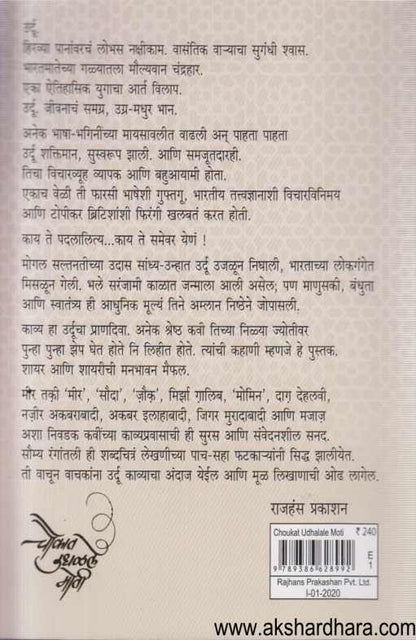 उर्दू.
हिरव्या पानांवरचं लोभस नक्षीकाम. वासंतिक वाऱ्याचा सुगंधी श्वास.
भारतमातेच्या गळ्यातला मौल्यवान चंद्रहार.
एका ऐतिहासिक युगाचा आर्त विलाप.
उर्दू. जीवनाचं समग्र, उग्र-मधुर भान.
अनेक भाषा-भगिनींच्या मायसावलीत वाढली अन् पाहता पाहता
उर्दू शक्तिमान, सुस्वरूप झाली. आणि समजूतदारही.
तिचा विचारव्यूह व्यापक आणि बहुआयामी होता.
एकाच वेळी ती फारसी भाषेशी गुफ्तगू, भारतीय तत्त्वज्ञानाशी विचारविनिमय
आणि टोपीकर ब्रिटिशांशी फिरंगी खलबतं करत होती.
काय ते पदलालित्य...काय ते समेवर येणं !
मोगल सल्तनतीच्या उदास सांध्य-उन्हात उर्दू उजळून निघाली, भारताच्या लोकगंगेत
मिसळून गेली. भले सरंजामी काळात जन्माला आली असेल; पण माणुसकी, बंधुता
आणि स्वातंत्र्य ही आधुनिक मूल्यं तिने अम्लान निष्ठेने जोपासली.
काव्य हा उर्दूचा प्राणदिवा. अनेक श्रेष्ठ कवी तिच्या निळ्या ज्योतीवर
पुन्हा पुन्हा झेप घेत होते नि लिहीत होते. त्यांची कहाणी म्हणजे हे पुस्तक.
शायर आणि शायरीची मनभावन मैफल.
मीर तक़ी 'मीर', 'सौदा', 'ज़ौक़', मिर्झा ग़ालिब, 'मोमिन', दाग़ देहलवी,
नज़ीर अकबराबादी, अकबर इलाहाबादी, जिगर मुरादाबादी आणि मजाज़
अशा निवडक कवींच्या काव्यप्रवासाची ही सुरस आणि संवेदनशील सनद.
सौम्य रंगांतली ही शब्दचित्रं लेखणीच्या पाच-सहा फटकाऱ्यांनी सिद्ध झालीयेत.
ती वाचून वाचकांना उर्दू काव्याचा अंदाज येईल आणि मूळ लिखाणाची ओढ लागेल.
राजहंस प्रकाशन
चौकात
उधळले
मोती
Choukat Udhalale Moti ₹ 240
E
1
9789386628992
Rajhans Prakashan Pvt. Ltd.
I-01-2020
www.akshardhara.com